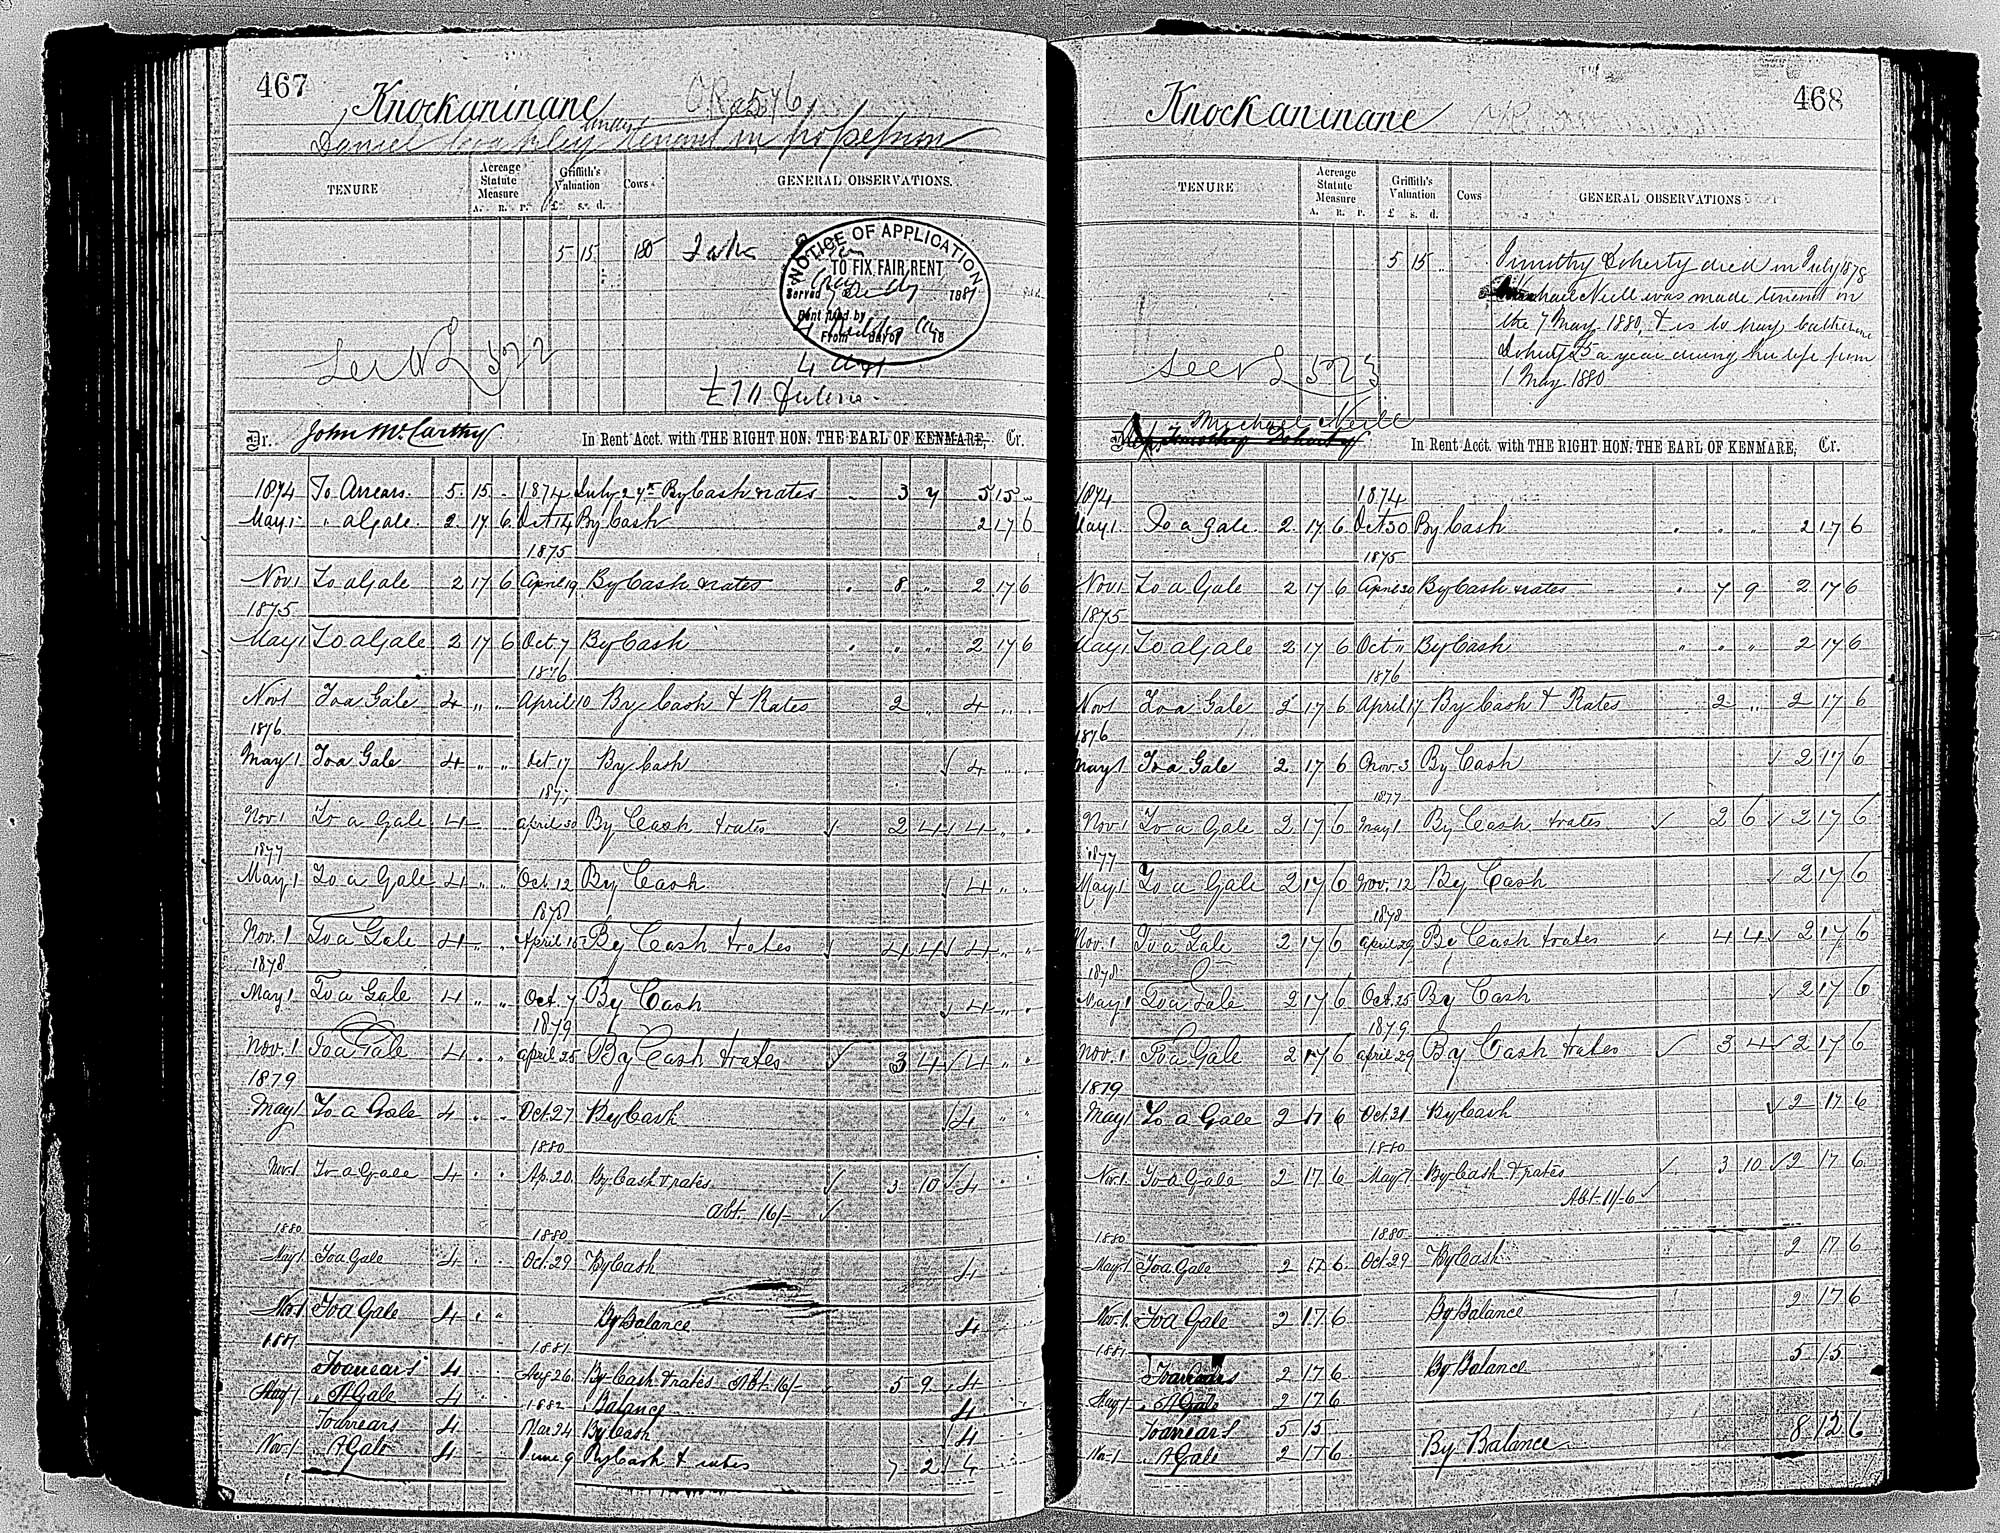 467
Knockaninane
OR 2576
Daniel Coakley under tenant in possession
TENURE
Acreage Statute Measure
A. R. P.
Griffith's Valuation
£ s. d.
Cows
GENERAL OBSERVATIONS.
5 15
NOTICE OF APPLICATION
TO FIX FAIR RENT
Served 1881
Rent fixed by
From day of 18
See N L 522
Dr. John McCarthy In Rent Acct. with THE RIGHT HON: THE EARL OF KENMARE, Cr.
1874 To Arrears. 5. 15. 1874 July 24 By Cash & rates 3 7 5 15
May 1 " a Gale. 2. 17. 6 Oct 14 By Cash 2 17 6
1875
Nov 1 To a Gale 2 17 6 April 19 By Cash & rates 8 " 2 17 6
1875
May 1 To a Gale 2 17 6 Oct. 7 By Cash " " 2 17 6
1876
Nov 1 To a Gale 4 " " April 10 By Cash & Rates 2 " 4
1876
May 1 To a Gale 4 " " Oct. 17 By Cash 4
1877
Nov 1 To a Gale 4 April 30 By Cash & rates 2 4 4
1877
May 1 To a Gale 4 " " Oct. 12 By Cash 4 " "
1878
Nov. 1 To a Gale 4 " " April 10 By Cash & rates 4 4 4 " "
1878
May 1 To a Gale 4 " " Oct. 7 By Cash 4 "
1879
Nov. 1 To a Gale 4 " " April 25 By Cash & rates 3 4 4 " "
1879
May 1 To a Gale 4 Oct. 27 By Cash 4 " "
1880
Nov. 1 To a Gale 4 Ap. 20. By Cash & rates 3 10 4
Abt. 16/-
1880 1880
May 1 To a Gale 4 Oct. 29 By Cash 4
Nov. 1 To a Gale 4 " " By Balance 4
1881 1881
To arrears 4 Aug 26 By Cash & rates Abt. 16/- 5 9 4
May 1 " A Gale 4 1882 " Balance 4
To arrears 4 Mar 24 By Cash 4
Nov. 1 " A Gale 4 June 9 By Cash & rates 7 2 4
468
Knockaninane
TENURE
Acreage Statute Measure
A. R. P.
Griffith's Valuation
£ s. d.
Cows
GENERAL OBSERVATIONS
5 15 "
Timothy Doherty died in July 1878
Michael Neill was made tenant on
the 7 May 1880, & is to pay Catherine
Doherty £5 a year during her life from
1 May 1880
See N L 523
Michael Neill
Dr. Reps Timothy Doherty In Rent Acct. with THE RIGHT HON: THE EARL OF KENMARE, Cr.
1874 1874
May 1. To a gale. 2. 17 6 Oct 30 By Cash " " " 2 17 6
1875
Nov 1 To a Gale 2 17 6 April 30 By Cash & rates 7 9 2 17 6
1875
May 1 To a Gale 2 17 6 Oct. 11 By Cash " " " 2 17 6
1876
Nov 1 To a Gale 2 17 6 April 17 By Cash & Rates 2 " 2 17 6
1876
May 1 To a Gale 2 17 6 Nov. 3 By Cash 2 17 6
1877
Nov 1 To a Gale 2 17 6 May 1 By Cash & rates 2 6 2 17 6
1877
May 1 To a Gale 2 17 6 Nov. 12 By Cash 2 17 6
1878
Nov. 1 To a Gale 2 17 6 April 29 By Cash & rates 4 4 2 17 6
1878
May 1 To a Gale 2 17 6 Oct. 25 By Cash 2 17 6
1879
Nov. 1 To a Gale 2 17 6 April 29 By Cash & rates 3 4 2 17 6
1879
May 1 To a Gale 2 17 6 Oct. 31 By Cash 2 17 6
1880
Nov. 1 To a Gale 2 17 6 May 7 By Cash & rates 3 10 2 17 6
Abt 11/6
1880 1880
May 1 To a Gale 2 17 6 Oct. 29 By Cash 2 17 6
Nov. 1 To a Gale 2 17 6 By Balance 2 17 6
1881
To arrears 2 17 6 By Balance 5 15
May 1 " A Gale 2 17 6
To arrears 5 15
Nov. 1 " A Gale 2 17 6 By Balance 8 12 6